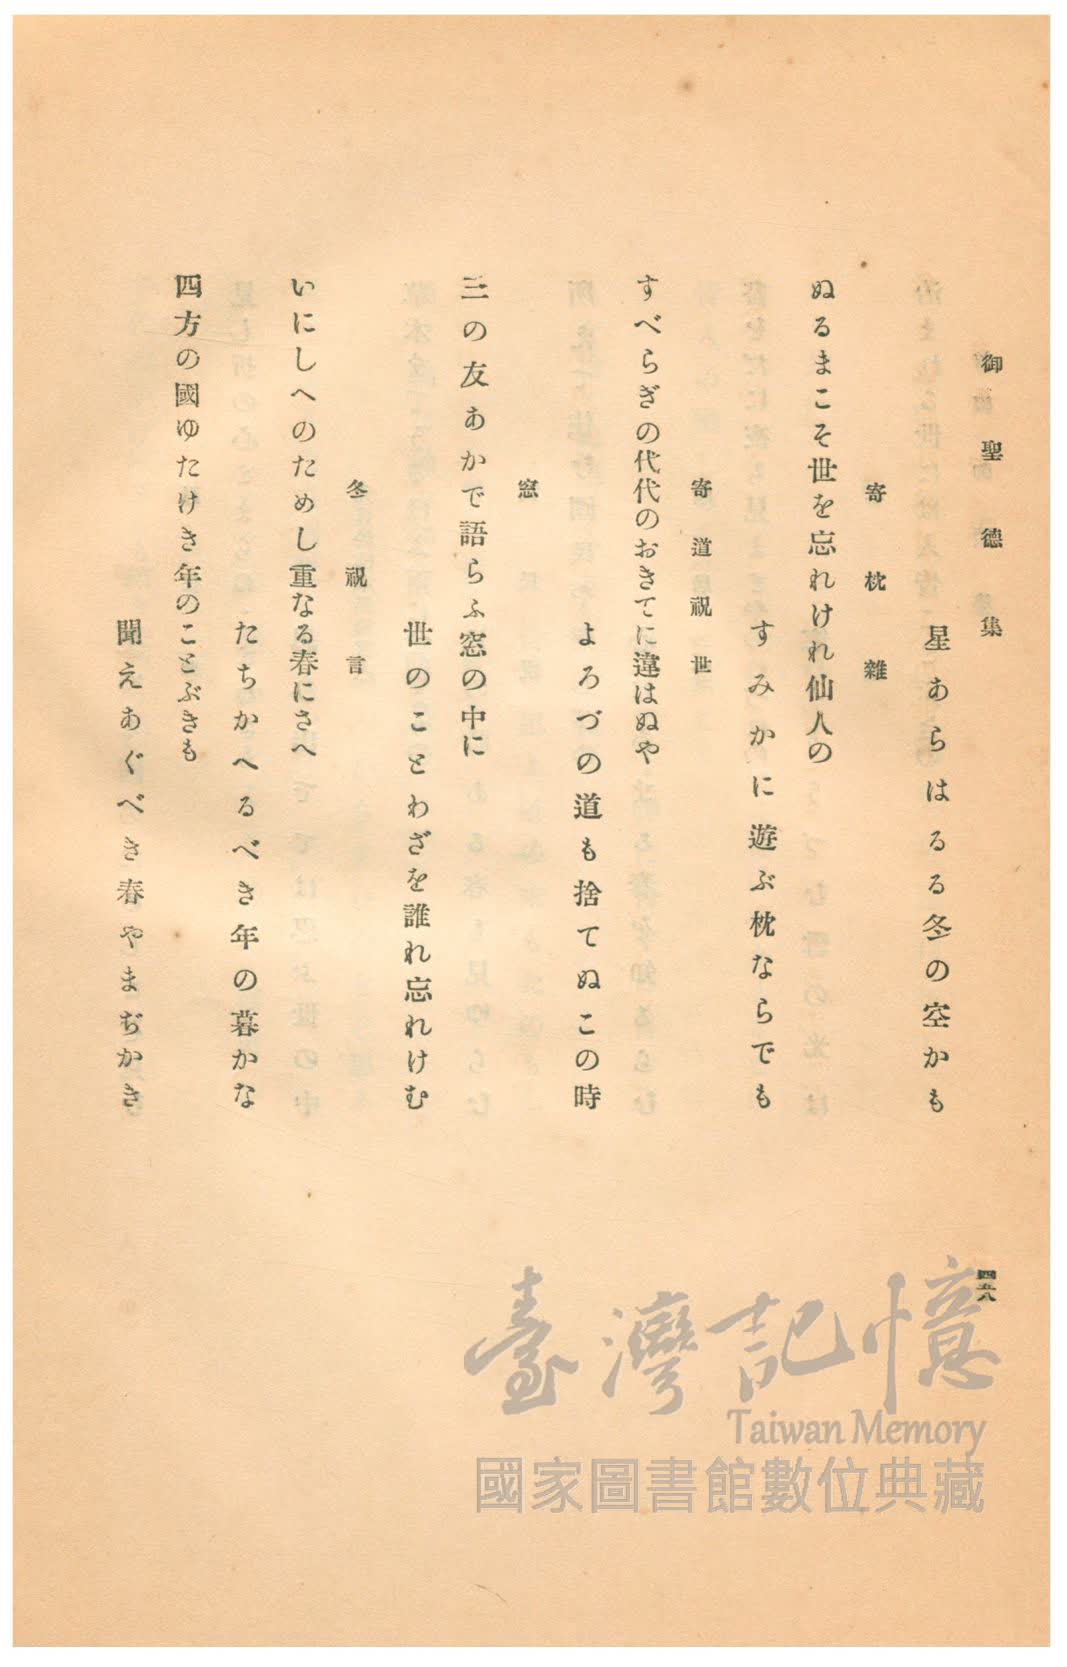 御聖德集
星あらはるる冬の空かも
寄枕雜
ぬるまこそ世を忘れけれ仙人の
すみかに遊ぶ枕ならでも
寄道祝世
すべらぎの代代のおきてに違はぬや
よろづの道も捨てぬこの時
窓
三の友あかで語らふ窓の中に
世のことわざを誰れ忘れけむ
冬祝言
いにしへのためし重なる春にさへ
たちかへるべき年の暮かな
四方の國ゆたけき年のことぶきも
聞えあぐべき春やまぢかき
四五八
臺灣記憶
Taiwan Memory
國家圖書館數位典藏